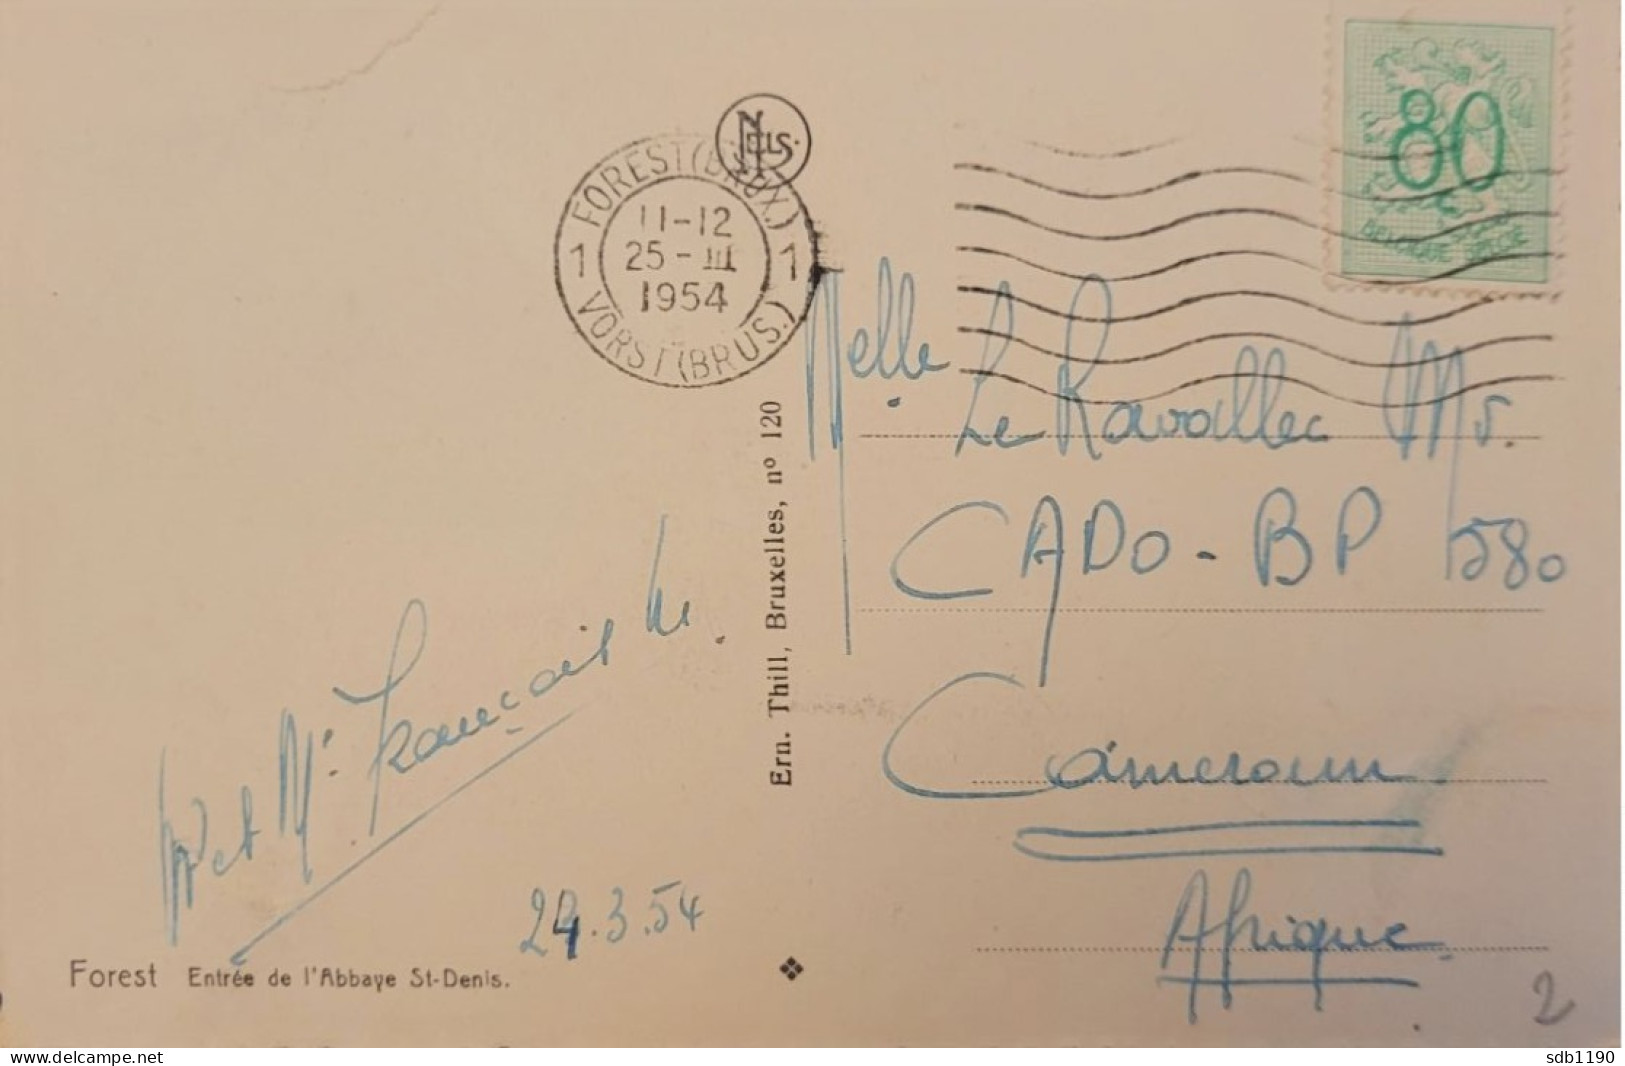 80
BELGIQUE-BELGIE
NELS.
FOREST (BRUX.)
11-12
1 25-III 1
1954
VORST (BRUS.)
Melle Le Ravallec Ms.
CADO - BP 580
Cameroun
Afrique
Ern. Thill, Bruxelles, nº 120
et Mr. François
24.3.54
Forest Entrée de l'Abbaye St-Denis.
2
delcampe.net
sdb1190